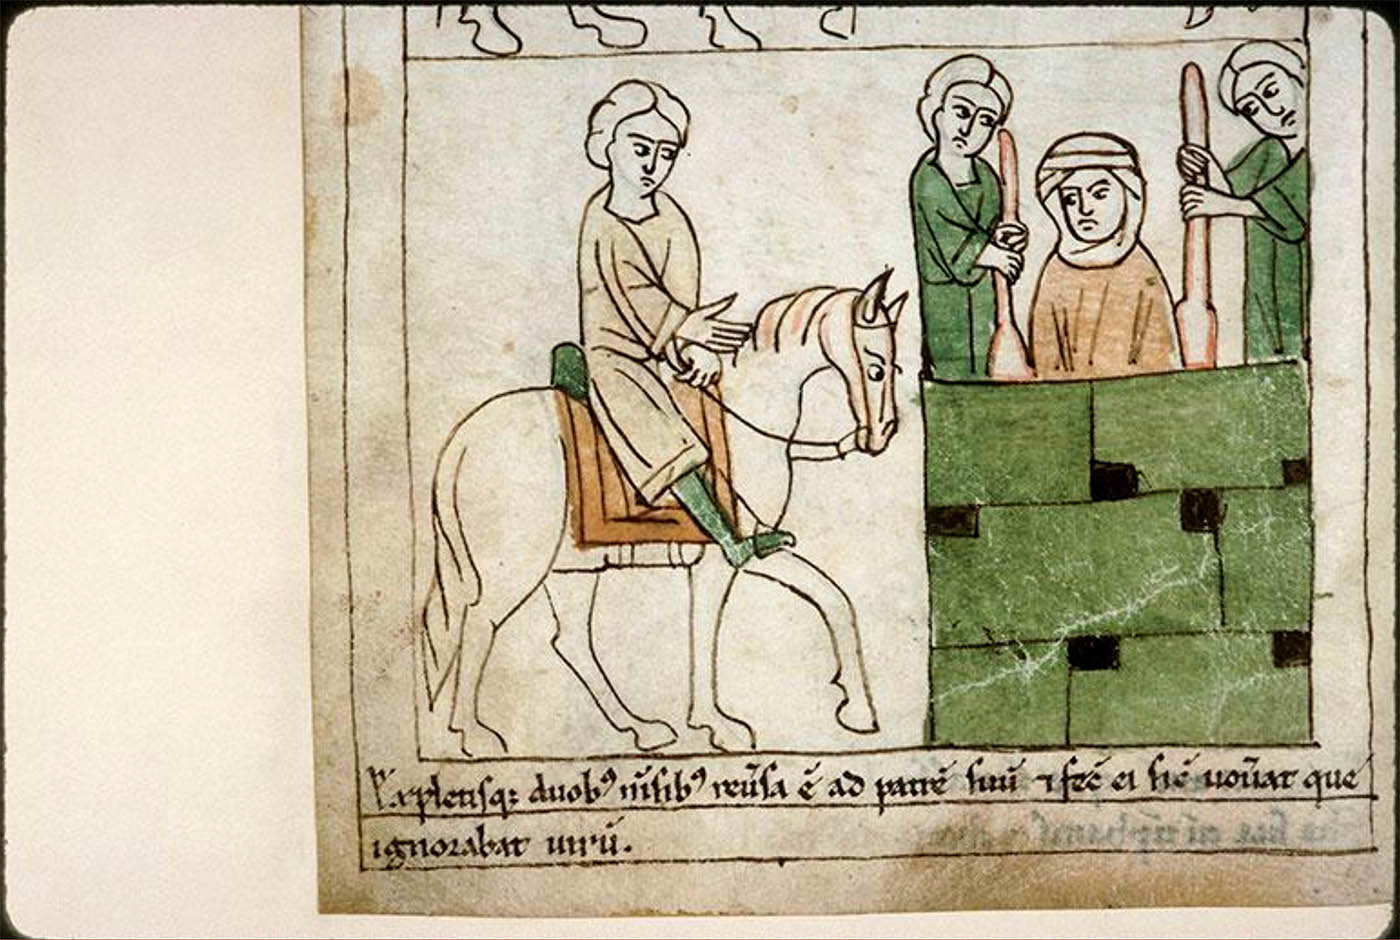 Expletisq; duob⁹ m̄sib⁹ reūsa ē ad patrē suū ⁊ fec̄ ei sic̄ uoūat que
ignorabat uirū.